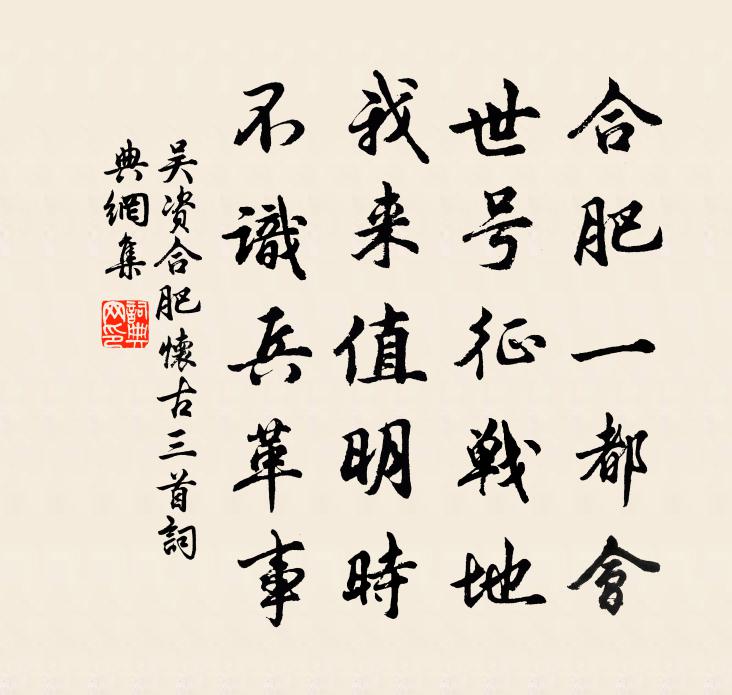 合肥一都會
世号征戦地
我来值明時
不識兵革事
吴资合肥懷古三首詞
典網集
詞典网印